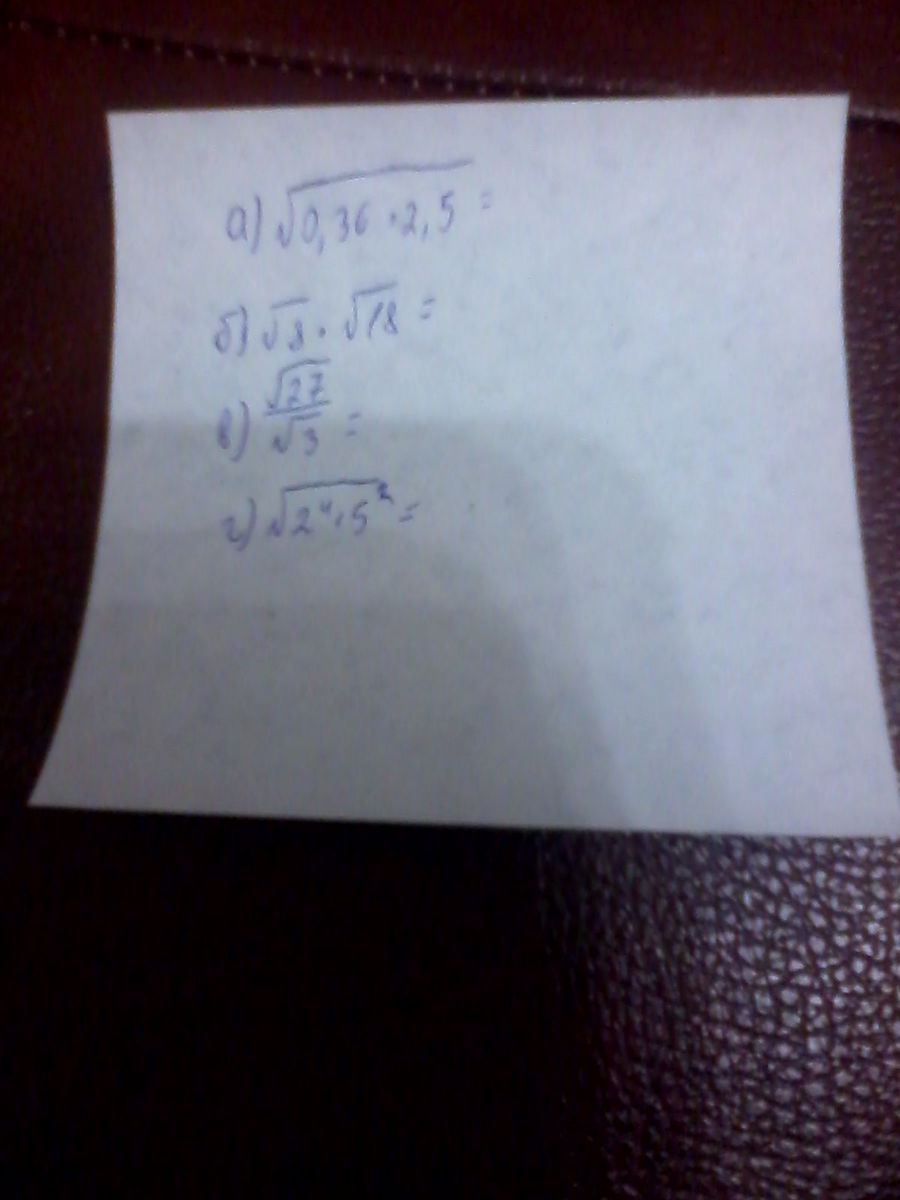 а) √0,36 · 2,5 =
б) √8 · √18 =
в) √27/√3 =
г) √2⁴ · 5² =